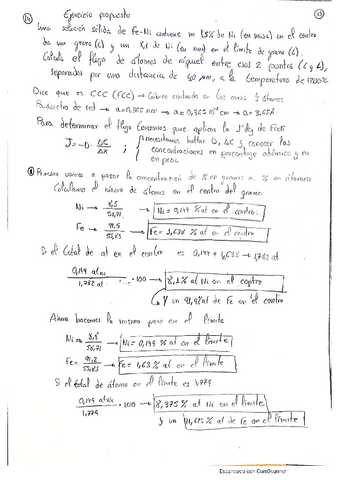 14 Ejercicio propuesto 15
Una solución sólida de Fe-Ni contiene un 8,5% de Ni (en masa) en el centro
de un grano (C) y un 8,8 de Ni (en masa) en el límite de grano (L).
Calcula el flujo de átomos de níquel entre esos 2 puntos (C y L),
separados por una distancia de 40 μm, a la temperatura de 1200°C
Dice que es CCC (FCC) → Cúbica centrada en las caras 4 átomos
Parámetro de red → a = 0,365 nm → a = 0,365·10⁻⁷ cm → a = 3,65 Å
Para determinar el flujo tenemos que aplicar la 1ª ley de Fick
J = -D · ΔC/Δx ; Necesitamos hallar D, ΔC y conocer las
concentraciones en porcentaje atómico y no
en peso
① Primero vamos a pasar la concentración de % en gramos a % en atómico
Calculamos el número de átomos en el centro del grano
Ni → 8,5/58,71 → Ni = 0,144 % at en el centro
Fe → 91,5/55,85 → Fe = 1,638 % at en el centro
Si el total de at en el centro es 0,144 + 1,638 → 1,782 at
0,144 at Ni/1,782 at · 100 → 8,1 % at Ni en el centro
Y un 91,9% at de Fe en el centro
Ahora hacemos lo mismo pero en el límite
Ni → 8,8/58,71 → Ni = 0,149 % at en el límite
Fe = 91,2/55,85 → Fe = 1,63 % at en el límite
Si el total de átomo en el límite es 1,779
0,149 at Ni/1,779 · 100 → 8,375 % at Ni en el límite
y un 91,625 % at de Fe en el límite
Escaneado con CamScanner